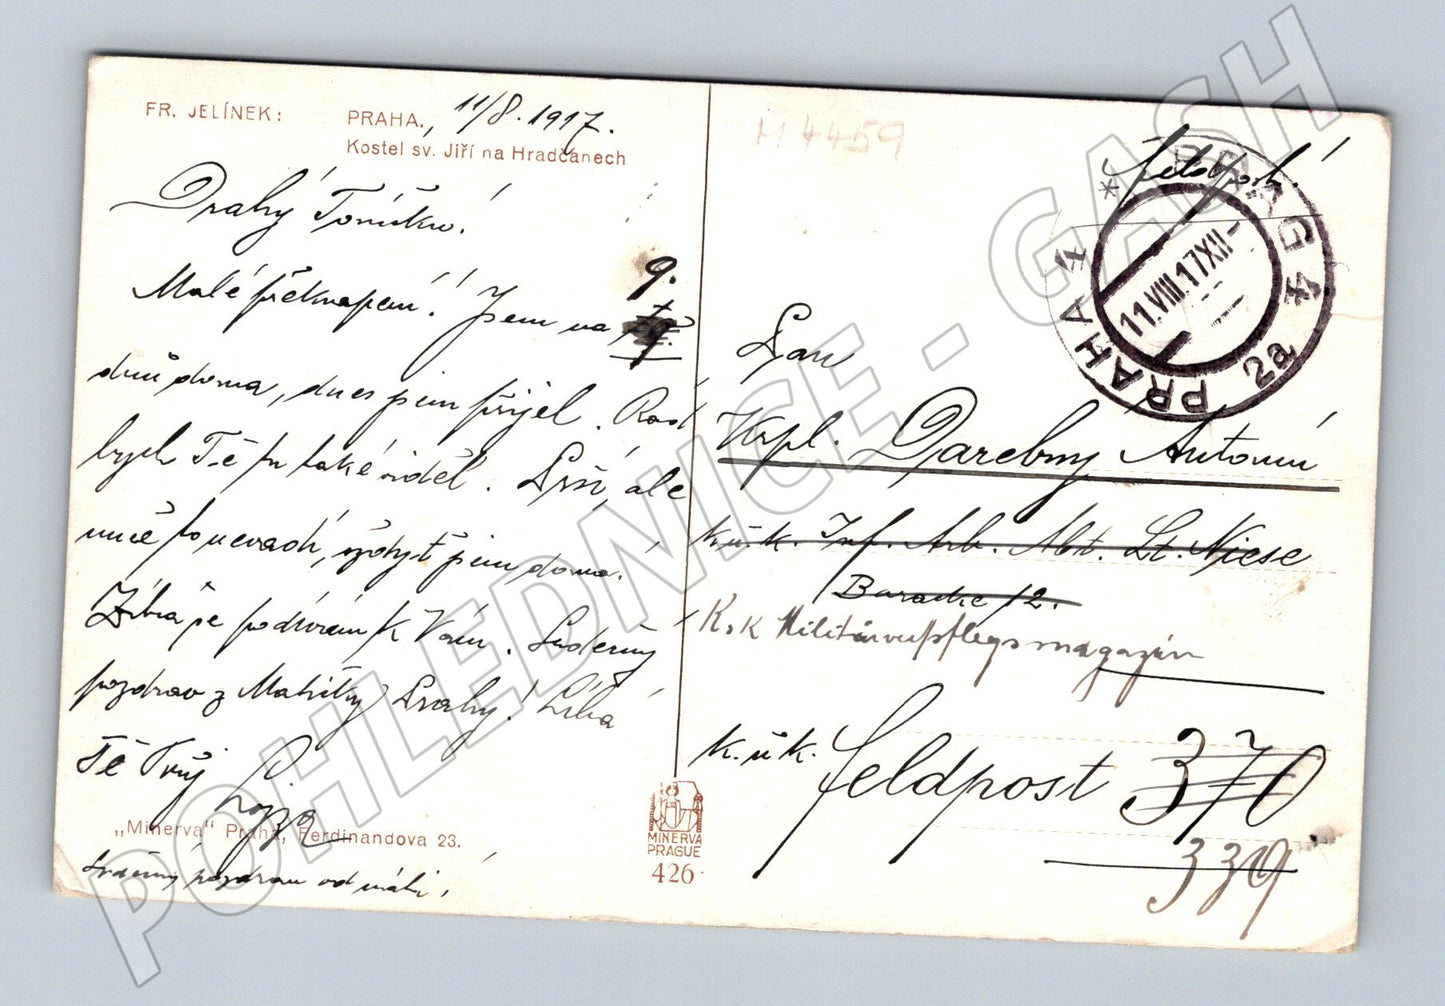 FR. JELÍNEK: PRAHA., 11/8. 1917.
Kostel sv. Jiří na Hradčanech
Drahý Toníčku!
Malé překvapení! Jsem na 9.
dnů doma, dnes jsem přijel. Rád
bych Tě tu také viděl. Prší, ale
mně to nevadí, vždyť jsem doma.
Zítra se podívám k Vám. Srdečný
pozdrav z Matičky Prahy! Líbá
Tě Tvůj
Lojza
„Minerva" Praha, Ferdinandova 23.
Srdečný pozdrav od máti!
MINERVA
PRAGUE
426
H 4459
Feldpost!
PRAHA 4 PRAG 4
11.VIII.17 XII-
2a
Pan
Krpl. Darebný Antonín
k.u.k. Inf. Arb. Abt. Lt. Niese
Baracke 12.
K.u.K Militärverpflegsmagazin
k.u.k. Feldpost 370
339
POHLEDNICE - GASH